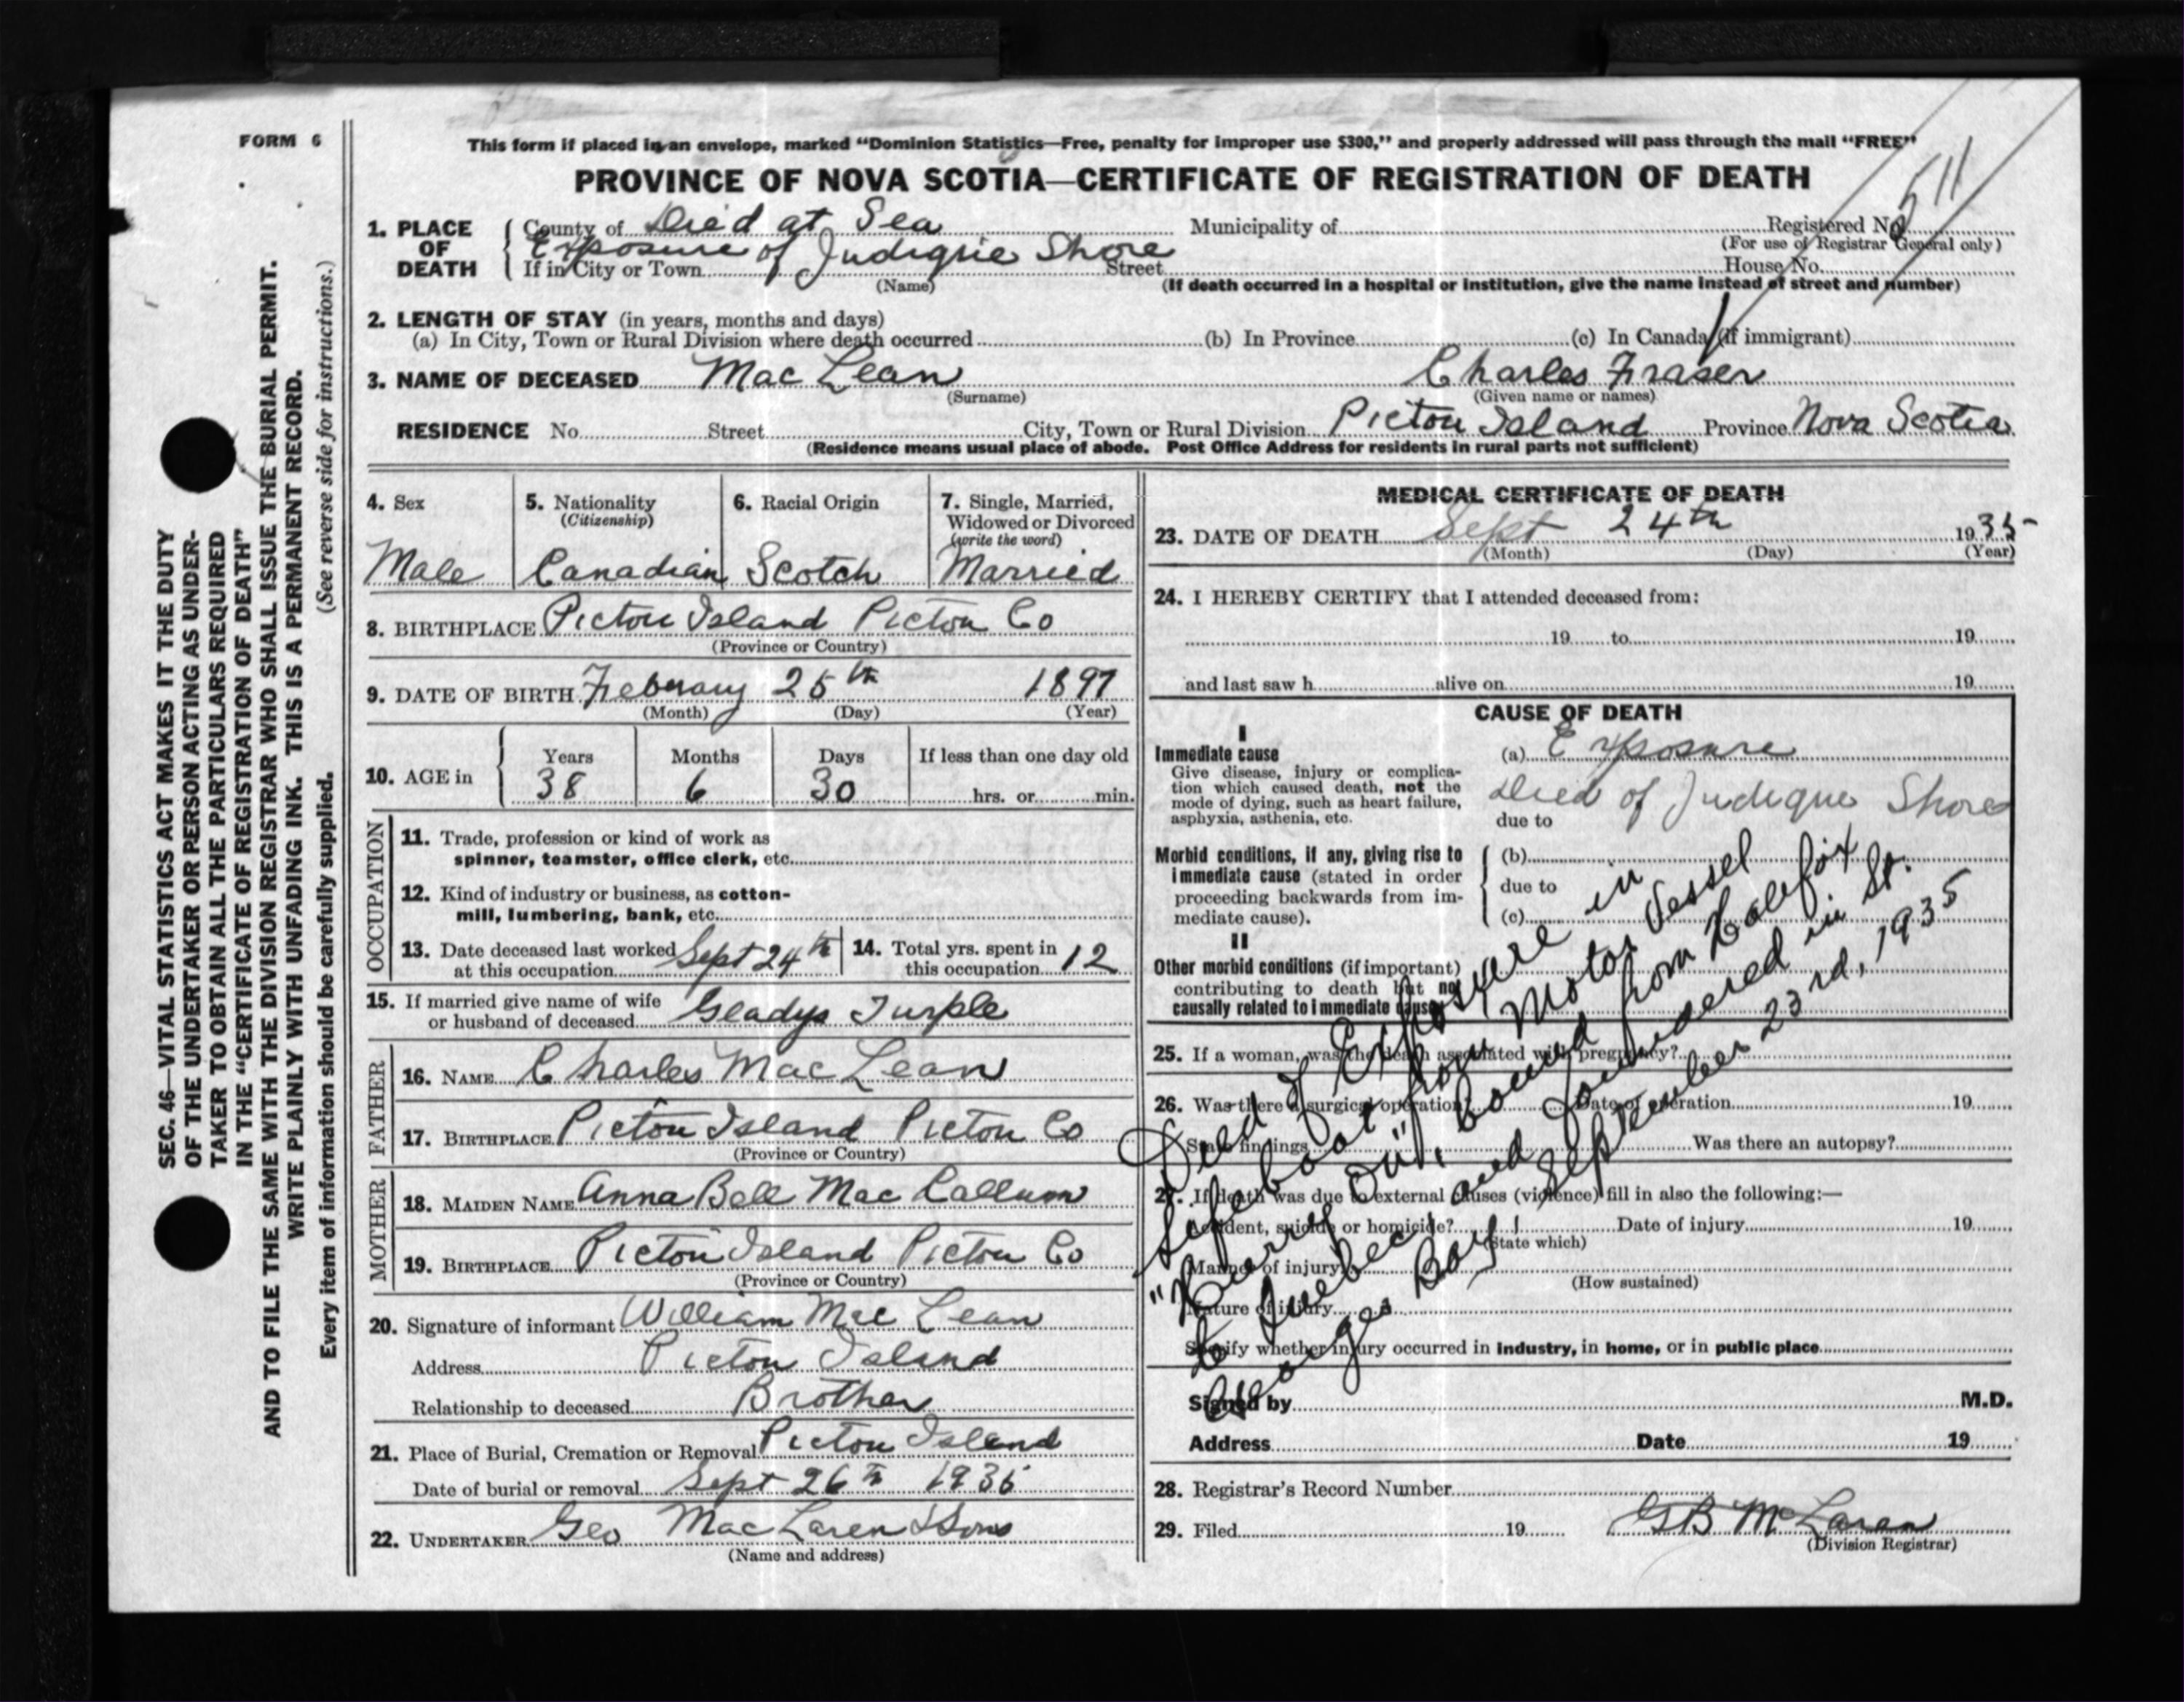 FORM 6
This form if placed in an envelope, marked "Dominion Statistics—Free, penalty for improper use $300," and properly addressed will pass through the mail "FREE"
PROVINCE OF NOVA SCOTIA—CERTIFICATE OF REGISTRATION OF DEATH
511
1. PLACE OF DEATH { County of Died at Sea Municipality of Registered No.
(For use of Registrar General only)
Exposure of Judique Shore
If in City or Town Street House No.
(Name) (If death occurred in a hospital or institution, give the name instead of street and number)
2. LENGTH OF STAY (in years, months and days)
(a) In City, Town or Rural Division where death occurred (b) In Province (c) In Canada (if immigrant)
3. NAME OF DECEASED Mac Lean Charles Fraser
(Surname) (Given name or names)
RESIDENCE No. Street City, Town or Rural Division Pictou Island Province Nova Scotia
(Residence means usual place of abode. Post Office Address for residents in rural parts not sufficient)
4. Sex 5. Nationality 6. Racial Origin 7. Single, Married,
(Citizenship) Widowed or Divorced
(write the word)
Male Canadian Scotch Married
8. BIRTHPLACE Pictou Island Pictou Co
(Province or Country)
9. DATE OF BIRTH Feberary 25th 1897
(Month) (Day) (Year)
10. AGE in { Years Months Days If less than one day old
38 6 30 hrs. or min.
OCCUPATION
11. Trade, profession or kind of work as
spinner, teamster, office clerk, etc.
12. Kind of industry or business, as cotton-
mill, lumbering, bank, etc.
13. Date deceased last worked at this occupation Sept 24th 14. Total yrs. spent in this occupation 12
15. If married give name of wife
or husband of deceased Gladys Turple
FATHER
16. NAME Charles Mac Lean
17. BIRTHPLACE Pictou Island Pictou Co
(Province or Country)
MOTHER
18. MAIDEN NAME Anna Bell Mac Callum
19. BIRTHPLACE Pictou Island Pictou Co
(Province or Country)
20. Signature of informant William Mac Lean
Address Pictou Island
Relationship to deceased Brother
21. Place of Burial, Cremation or Removal Pictou Island
Date of burial or removal Sept 26th 1935
22. UNDERTAKER Geo Mac Laren & Sons
(Name and address)
MEDICAL CERTIFICATE OF DEATH
23. DATE OF DEATH Sept 24th 1935
(Month) (Day) (Year)
24. I HEREBY CERTIFY that I attended deceased from:
19 to 19
and last saw h alive on 19
CAUSE OF DEATH
I
Immediate cause (a) Exposure
Give disease, injury or complica-
tion which caused death, not the
mode of dying, such as heart failure,
asphyxia, asthenia, etc.
Died of Judique Shore
due to
Morbid conditions, if any, giving rise to { (b)
immediate cause (stated in order due to
proceeding backwards from im-
mediate cause). (c)
II
Other morbid conditions (if important)
contributing to death but not
causally related to immediate cause
Died of Exposure in
Lifeboat from Motor Vessel
"Hurry On", bound from Halifax
to Quebec and foundered in St.
Georges Bay September 23rd, 1935
25. If a woman, was the death associated with pregnancy?
26. Was there a surgical operation? Date of operation 19
State findings Was there an autopsy?
27. If death was due to external causes (violence) fill in also the following:—
Accident, suicide or homicide? Date of injury 19
(State which)
Manner of injury
(How sustained)
Nature of injury
Specify whether injury occurred in industry, in home, or in public place
Signed by M.D.
Address Date 19
28. Registrar's Record Number
29. Filed 19 G B McLaren
(Division Registrar)
SEC. 46—VITAL STATISTICS ACT MAKES IT THE DUTY
OF THE UNDERTAKER OR PERSON ACTING AS UNDER-
TAKER TO OBTAIN ALL THE PARTICULARS REQUIRED
IN THE "CERTIFICATE OF REGISTRATION OF DEATH"
AND TO FILE THE SAME WITH THE DIVISION REGISTRAR WHO SHALL ISSUE THE BURIAL PERMIT.
WRITE PLAINLY WITH UNFADING INK. THIS IS A PERMANENT RECORD.
Every item of information should be carefully supplied. (See reverse side for instructions.)